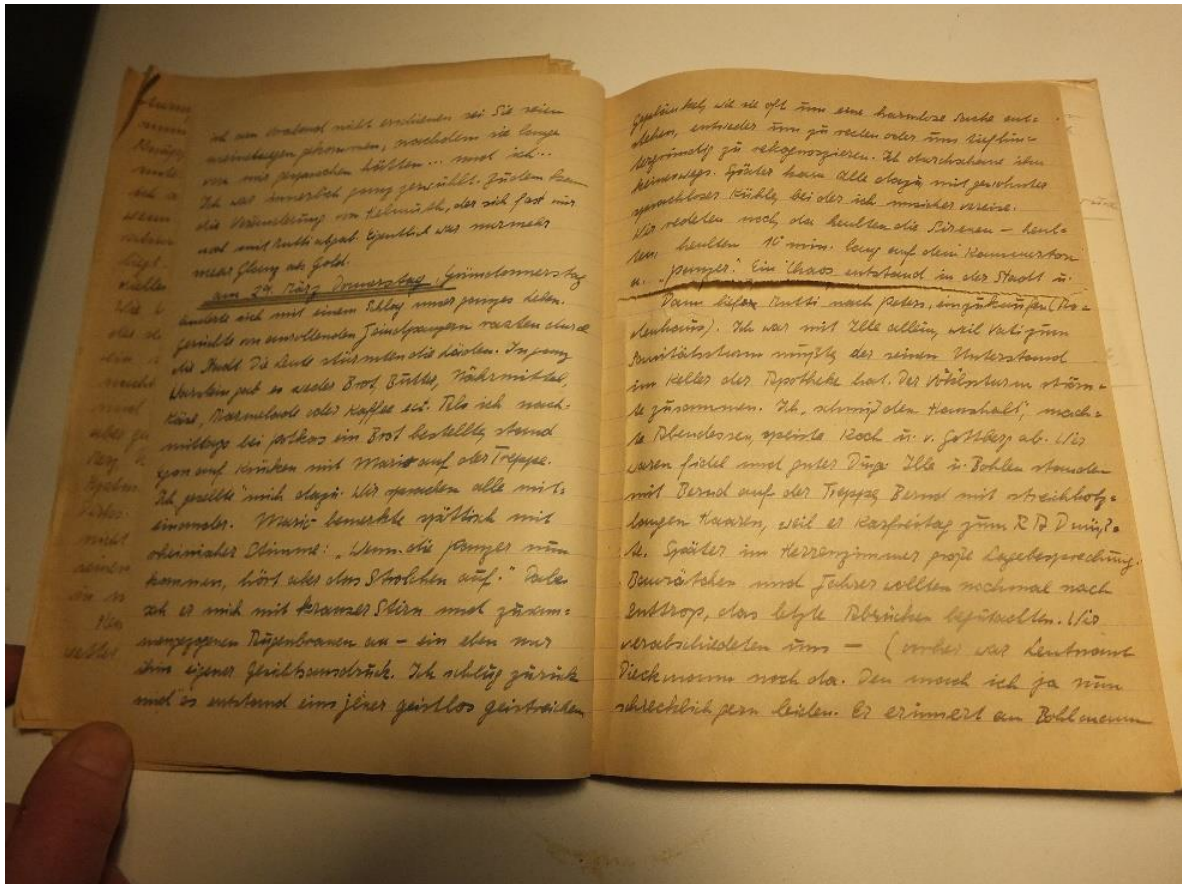 ich am Vorabend nicht erschienen sei Sie seien
meinetwegen gekommen, nachdem sie lange
von mir gesprochen hätten... und ich...
Ich war innerlich ganz zerwühlt. Zudem kam
die Veränderung von Helmuth, der sich fast nur
noch mit Mutti abgab. Eigentlich war nurmehr
mehr Glanz als Gold.
am 29. März Donnerstag, Gründonnerstag
änderte sich mit einem Schlag unser ganzes Leben.
Gerüchte von anrollenden Feindpanzern rasten durch
die Stadt. Die Leute stürmten die Läden. In ganz
Warstein gab es weder Brot, Butter, Nährmittel,
Käse, Marmelade oder Kaffee ect. Als ich nach-
mittags bei ein Brot bestellte, stand
auf Krücken mit Mario auf der Treppe.
Ich gesellte mich dazu. Wir sprachen alle mit-
einander. Mario bemerkte spöttisch mit
Stimme: „Wenn die Panzer nun
kommen, hört aber das Strolchen auf." Dabei
sah er mich mit krauser Stirn und zusam-
mengezogenen Augenbrauen an – ein eben nur
ihm eigener Gesichtsausdruck. Ich schlug zurück
und es entstand eins jener geistlos geistreichen
Geplänkel, wie sie oft um eine harmlose Sache ent-
stehen, entweder um zu necken oder uns tiefgrün-
zu rekognoszieren. Ich durchschaue ihn
keineswegs. Später kam Ille dazu mit gewohnter
Kühle, bei der ich unsicher vereise.
Wir redeten noch, da heulten die Sirenen – heul-
ten, heulten 10 min. lang auf dem Kammerton
a. „Panzer." Ein Chaos entstand in der Stadt u.
Dann liefen Mutti nach Peters, einzukaufen (Ro-
denhaus). Ich war mit Ille allein, weil Vati zum
Sanitätssturm mußte, der seinen Unterstand
im Keller der Apotheke hat. Der Volkssturm ström-
te zusammen. Ich „schmiß den Haushalt", mach-
te Abendessen, speiste Koch u. v. Gottberg ab. Wir
waren fidel und guter Dinge. Ille u. Bohlen standen
mit Bernd auf der Treppe, Bernd mit streichholz-
langen Haaren, weil er Karfreitag zum RAD muß-
te. Später im Herrenzimmer große Lagebesprechung.
und Fahrer wollten nochmal nach
das letzte Abrücken begutachten. Wir
verabschiedeten uns – (vorher war Leutnant
Dieckmann noch da. Den mach ich ja nun
schrecklich gern leiden. Er erinnert an Bohlmann